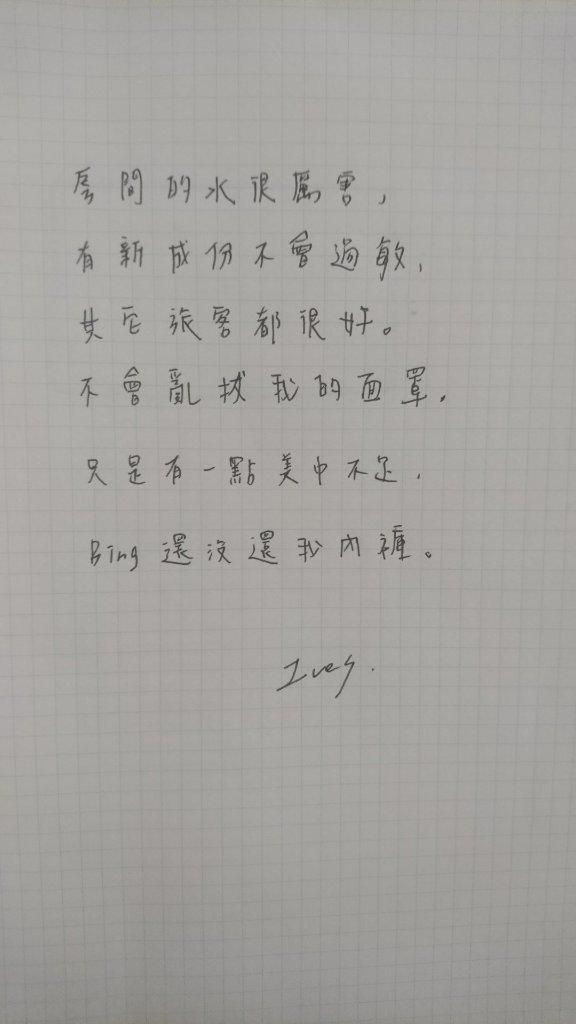 房間的水很厲害,
有新成份不會過敏,
其它旅客都很好。
不會亂拔我的面罩.
只是有一點美中不足.
Bing 還沒還我內褲。
Ives.